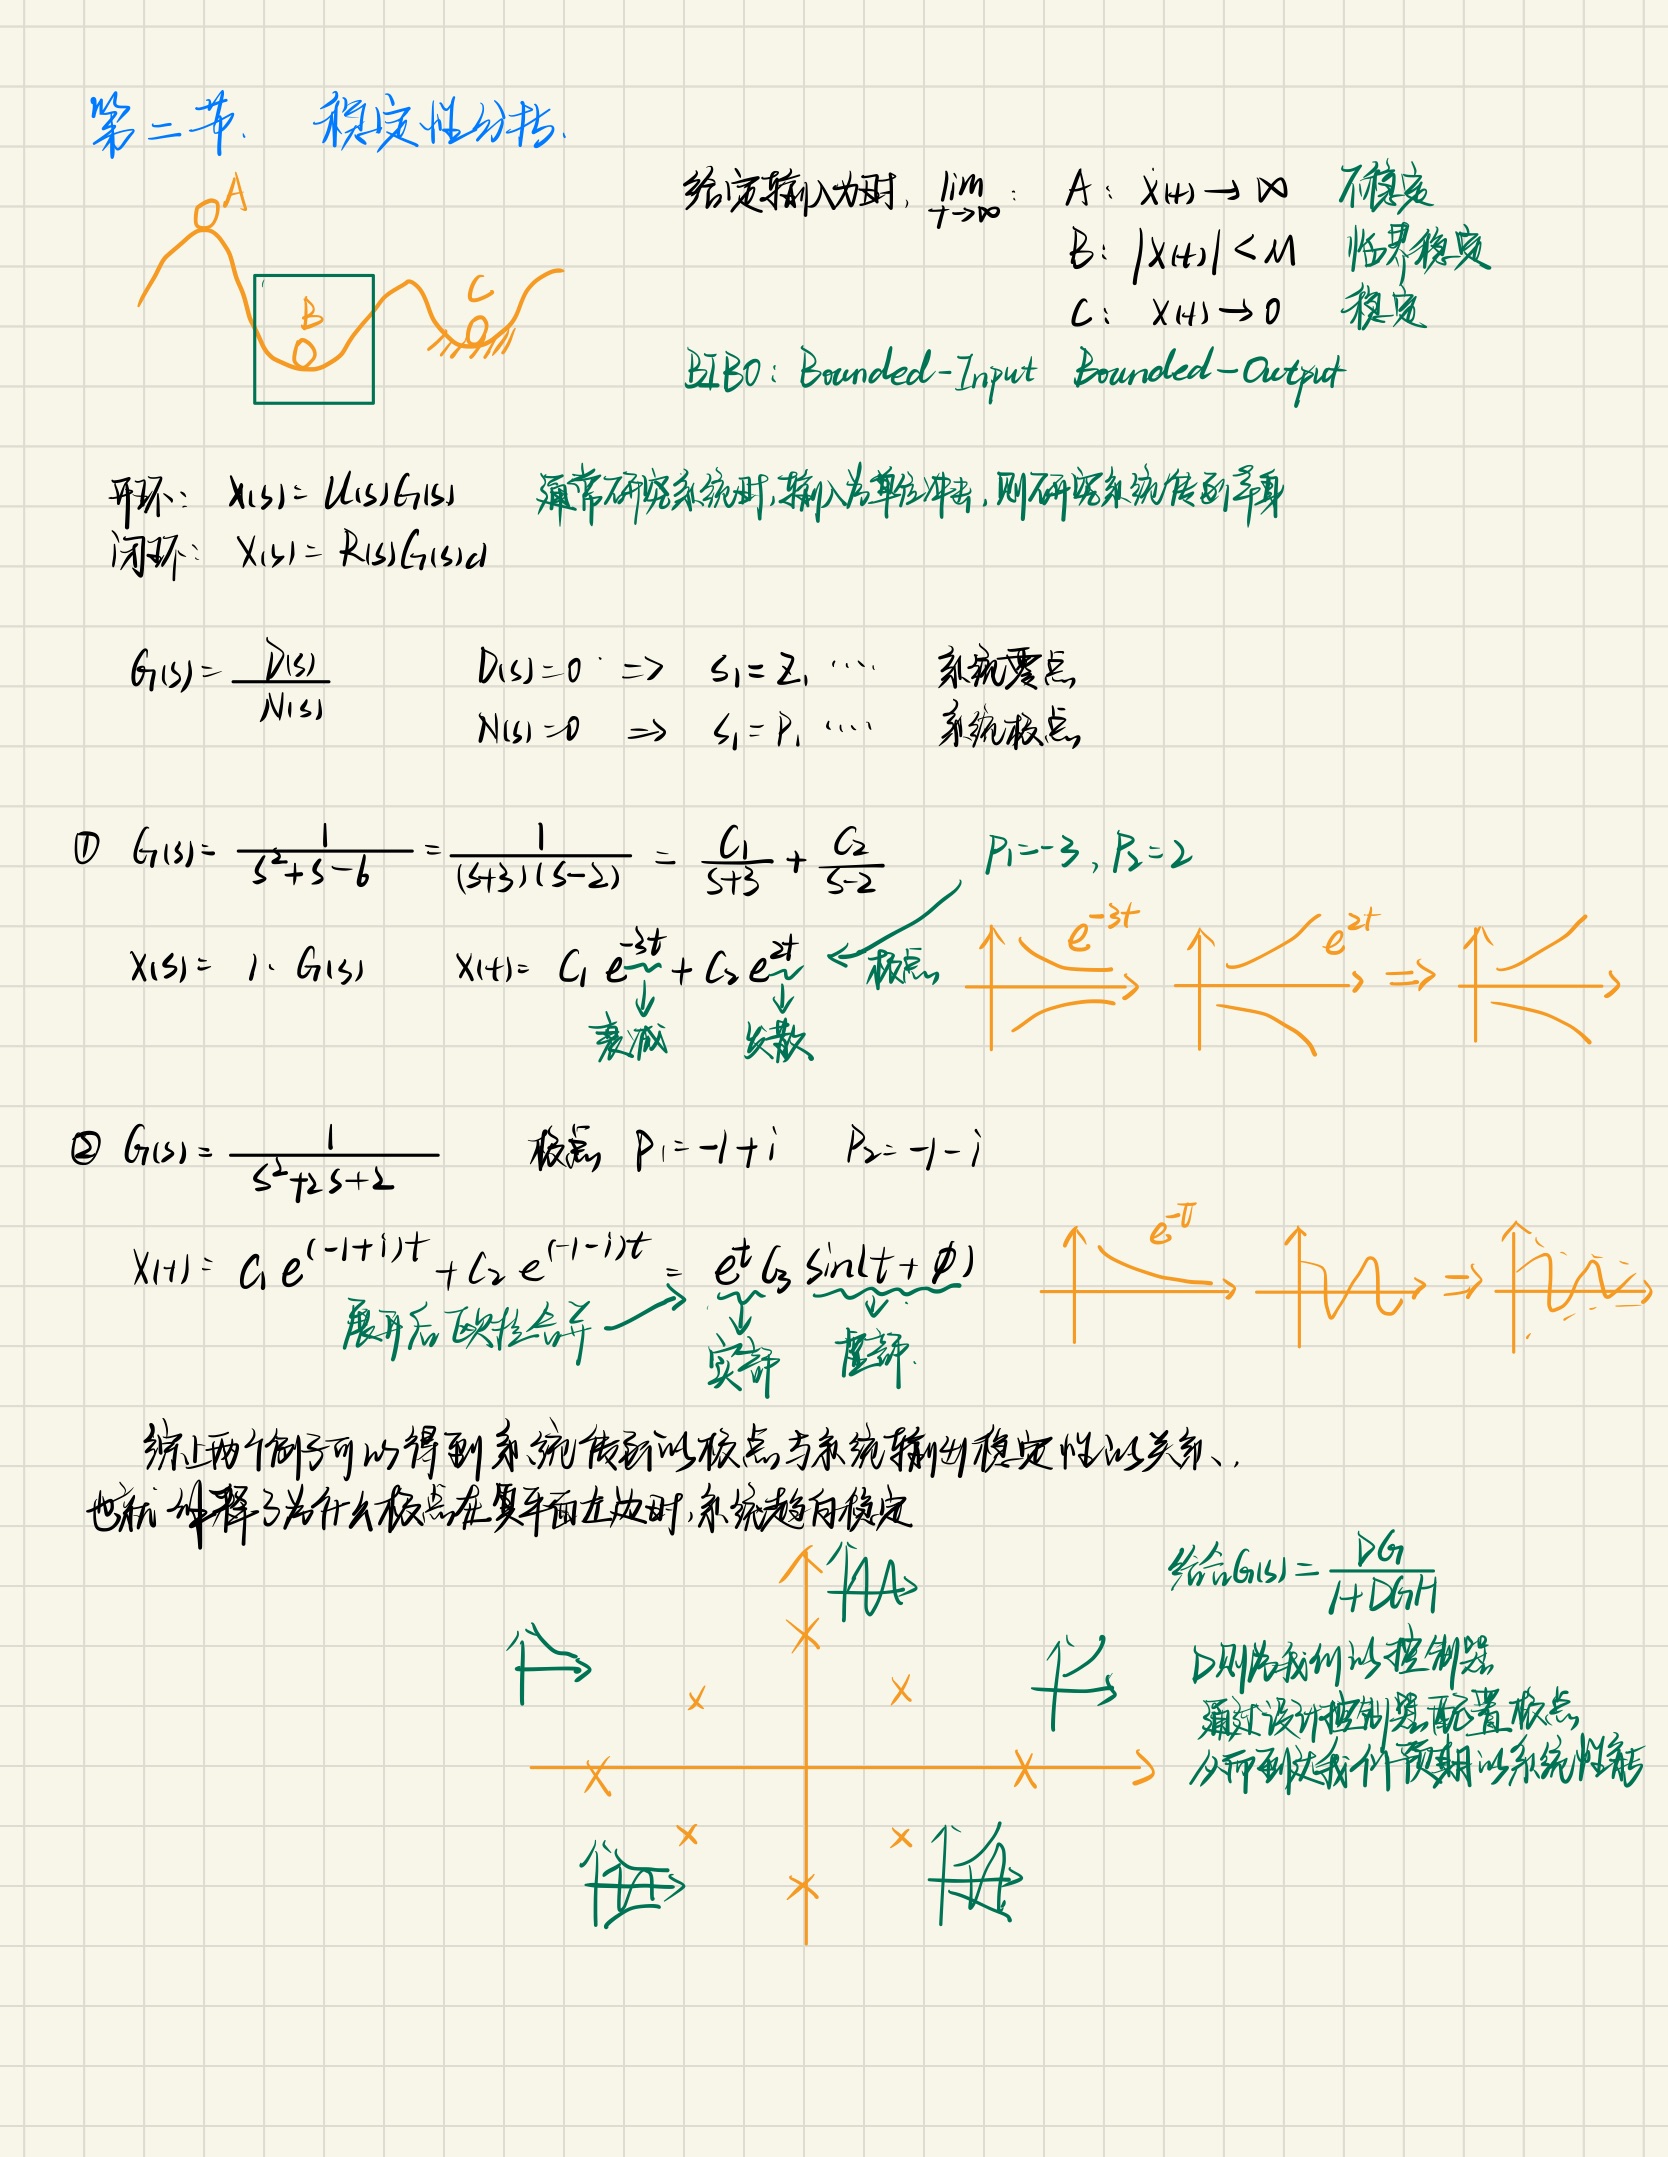 第二节. 稳定性分析.
A
B
C
给定输入为时, lim t→∞ : A: x(t) → ∞ 不稳定
B: |x(t)| < M 临界稳定
C: x(t) → 0 稳定
BIBO: Bounded-Input Bounded-Output
开环: X(s) = U(s)G(s) 通常研究系统时,输入为单位冲击,则研究系统传函本身
闭环: X(s) = R(s)G(s)cl
G(s) = D(s)/N(s) D(s)=0 => s₁=Z₁ ···· 系统零点
N(s)=0 => s₁=P₁ ···· 系统极点
① G(s) = 1/(s²+s-6) = 1/((s+3)(s-2)) = C₁/(s+3) + C₂/(s-2) P₁=-3, P₂=2
X(s) = 1·G(s) x(t) = C₁e^(-3t) + C₂e^(2t) 极点 e^(-3t) e^(2t) =>
衰减 发散
② G(s) = 1/(s²+2s+2) 极点 P₁=-1+i P₂=-1-i
x(t) = C₁e^((-1+i)t) + C₂e^((-1-i)t) = e^t C₃ sin(t+φ) =>
展开后欧拉合并
实部 虚部.
综上两个例子可以得到系统传函的极点与系统输出稳定性的关系.
也就解释了为什么极点在复平面左边时,系统趋向稳定
结合G(s) = DG/(1+DGH)
D则为我们的控制器
通过设计控制器配置极点
从而到达我们预期的系统性能